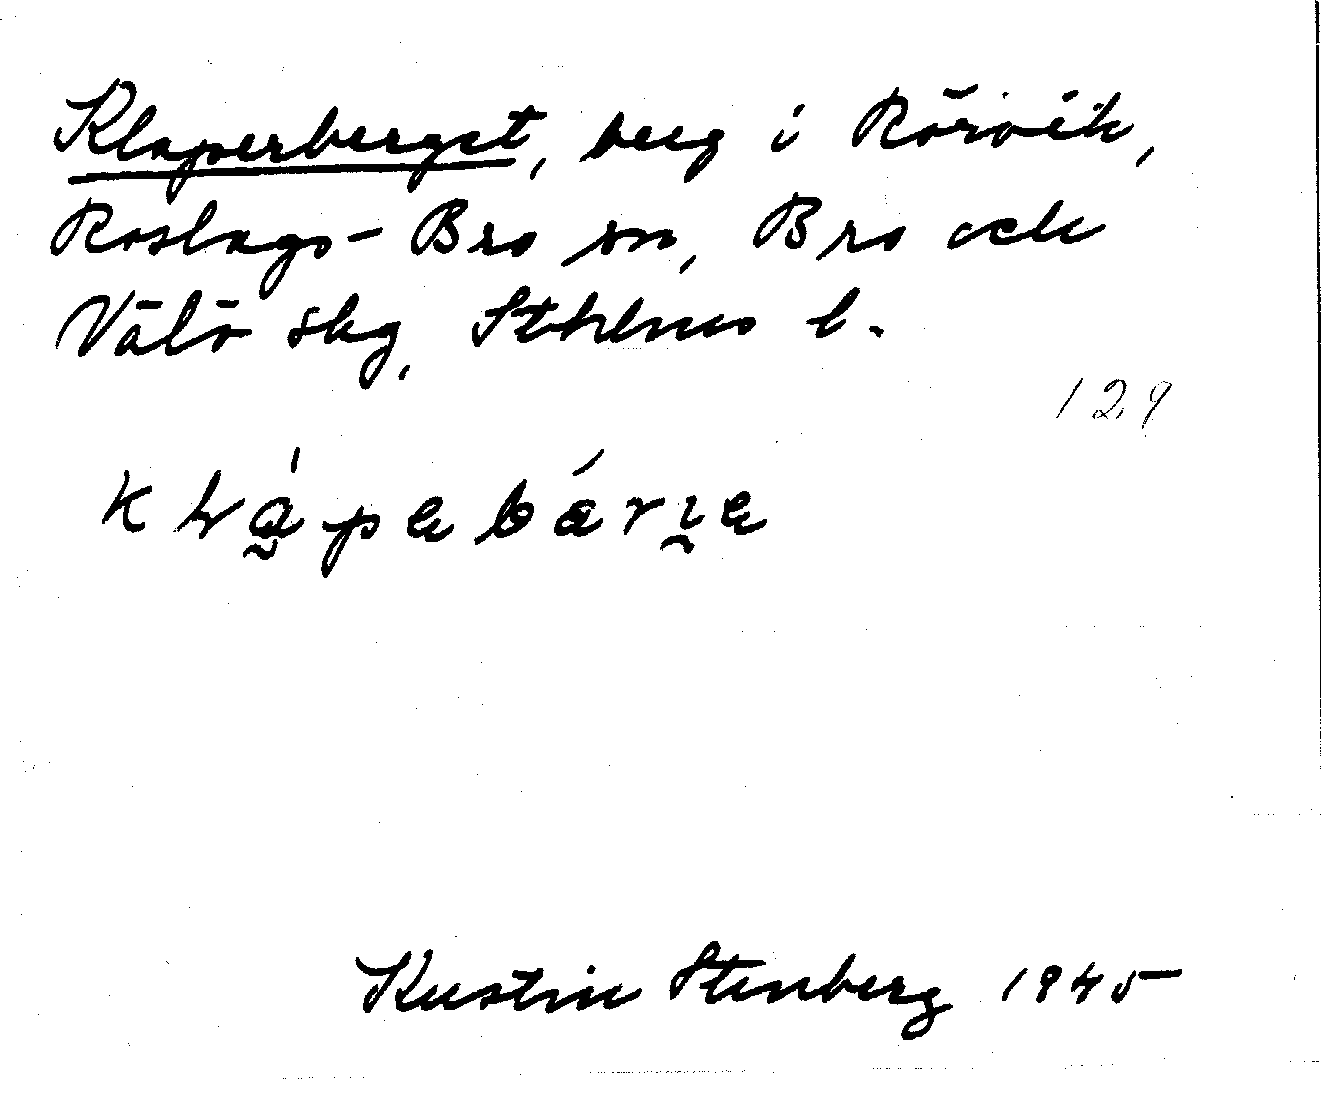 Klaperberget, berg i Rörvik,
Roslags-Bro sn, Bro och
Vätö skg, Sthlms l.
129
Kerstin Stenberg 1945